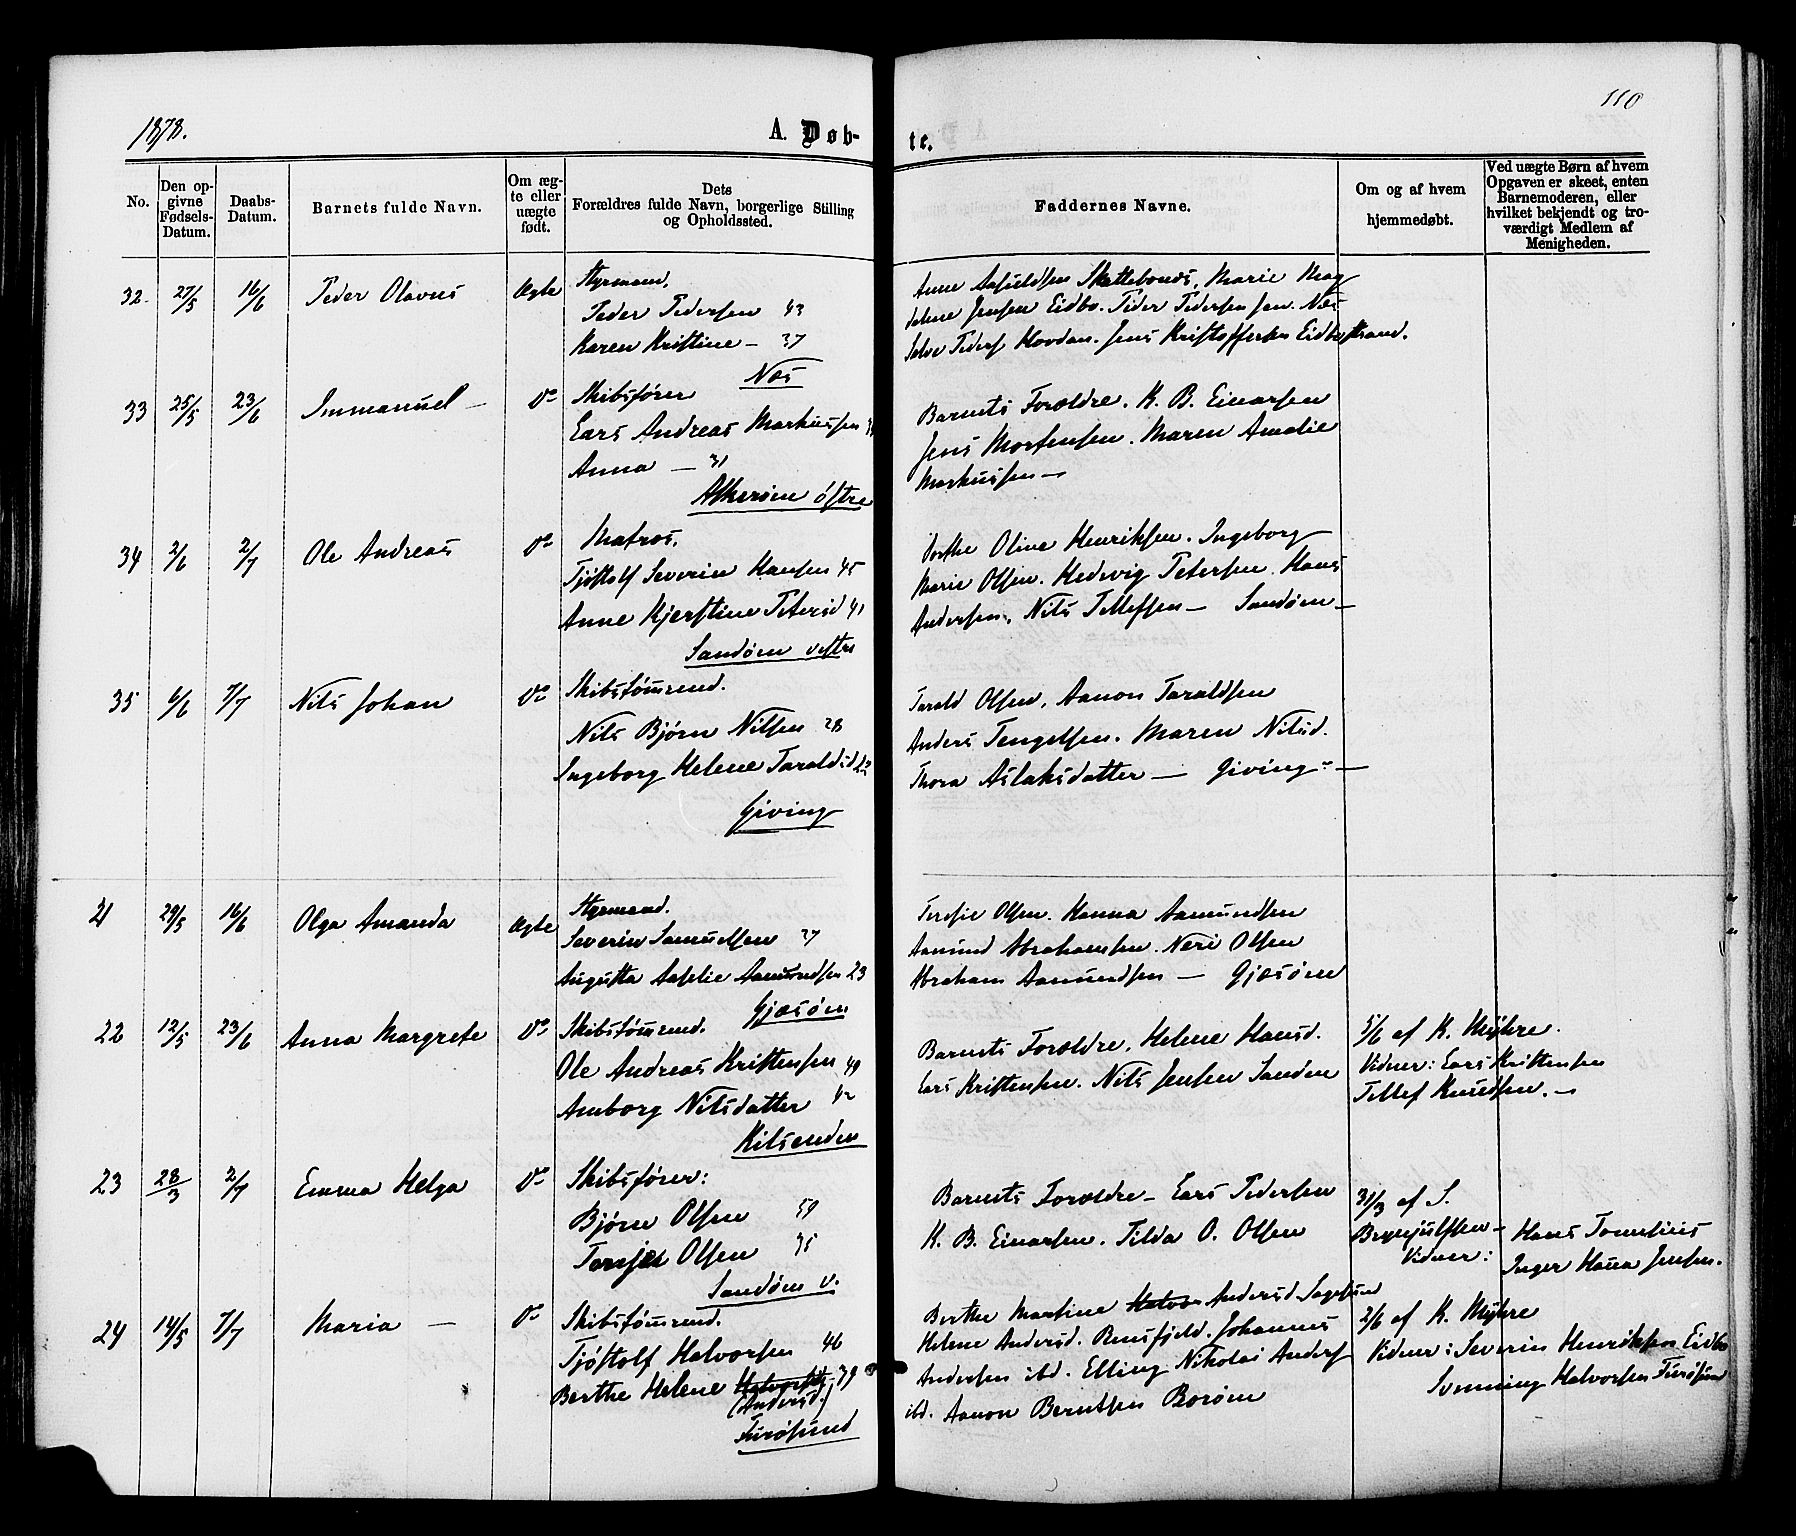 1878.
A. Døb-
te.
110
No.
Den op-
givne
Fødsels-
Datum.
Daabs-
Datum.
Barnets fulde Navn.
Om æg-
te eller
uægte
født.
Dets
Forældres fulde Navn, borgerlige Stilling
og Opholdssted.
Faddernes Navne.
Om og af hvem
hjemmedøbt.
Ved uægte Børn af hvem
Opgaven er skeet, enten
Barnemoderen, eller
hvilket bekjendt og tro-
værdigt Medlem af
Menigheden.
32. 27/5 16/6 Peder Olavus Ægte Styrmand,
Peder Pedersen 43
Karen Kristine — 37
Næs
Anne Marie Mag
delene Jensen Eidbo. Peder Pedersen jun. Næs
Peders Hovdan. Jens Kristoffersen Eidbostrand.
33 25/5 23/6 Immanuel — Do Skibsfører
Lars Andreas Markussen
Anna — 31
Askerøen østre
Barnets Forældre. K. B. Einarsen
Jens Mortensen. Maren Amalie
Markussen —
34 2/6 2/7 Ole Andreas Do Matros.
Tjøstolf Severin Hansen 45
Anne Kjerstine Petersd 41
Sandøen vestre
Berthe Oline Henriksen. Ingeborg
Marie Olsen. Hedevig Petersen. Hans
Andersen, Nils Tellefsen — Sandøen —
35 6/6 7/7 Nils Johan Do Skibstømmend.
Nils Bjørn Nilsen 28
Ingeborg Helene Taraldsd
Giving
Tarald Olsen, Aanon Taraldsen
Anders Tengelsen. Maren Nilsd.
Thora Aslaksdatter — Giving —
21 29/5 16/6 Olga Amanda Ægte Styrmand.
Severin Samuelsen 27
Augusta Aamundsen 23
Gjæsøen
Teresie Olsen. Hanna Aamundsen
Aamund Abrahamsen. Neri Olsen
Abraham Aamundsen — Gjæsøen
22 12/5 23/6 Anna Margrete Do Skibstømmend.
Ole Andreas Kristensen 49
Amborg Nilsdatter 42
Kilsenden
Barnets Forældre, Helene Hansd.
Lars Kristensen. Nils Jensen Sandøen
5/6 af K. Myhre.
Vidner: Lars Kristensen
Tellef Knudsen. —
23 28/3 2/7 Emma Helga Do Skibsfører:
Bjørn Olsen 59
Olsen 35
Sandøen v.
Barnets Forældre — Lars Pedersen
K. B. Einarsen. Tilda O. Olsen
31/3 af S.
Vidner: Hans
Inger Hana Jensen.
24 14/5 7/7 Maria — Do Skibstømmend.
Tjøstolf Halvorsen 46
Berthe Helene 39
(Andersd.)
Furøsund
Berthe Martine Andersd. Sagesund
Helene Andersd. Rensfjeld. Johannes
Andersen ibd. Elling Nikolai Anders
ibd. Aanon Berntsen Borøen
2/6 af K. Myhre
Vidner: Severin Henriksen Eidbo
Svenning Halvorsen Furøsund